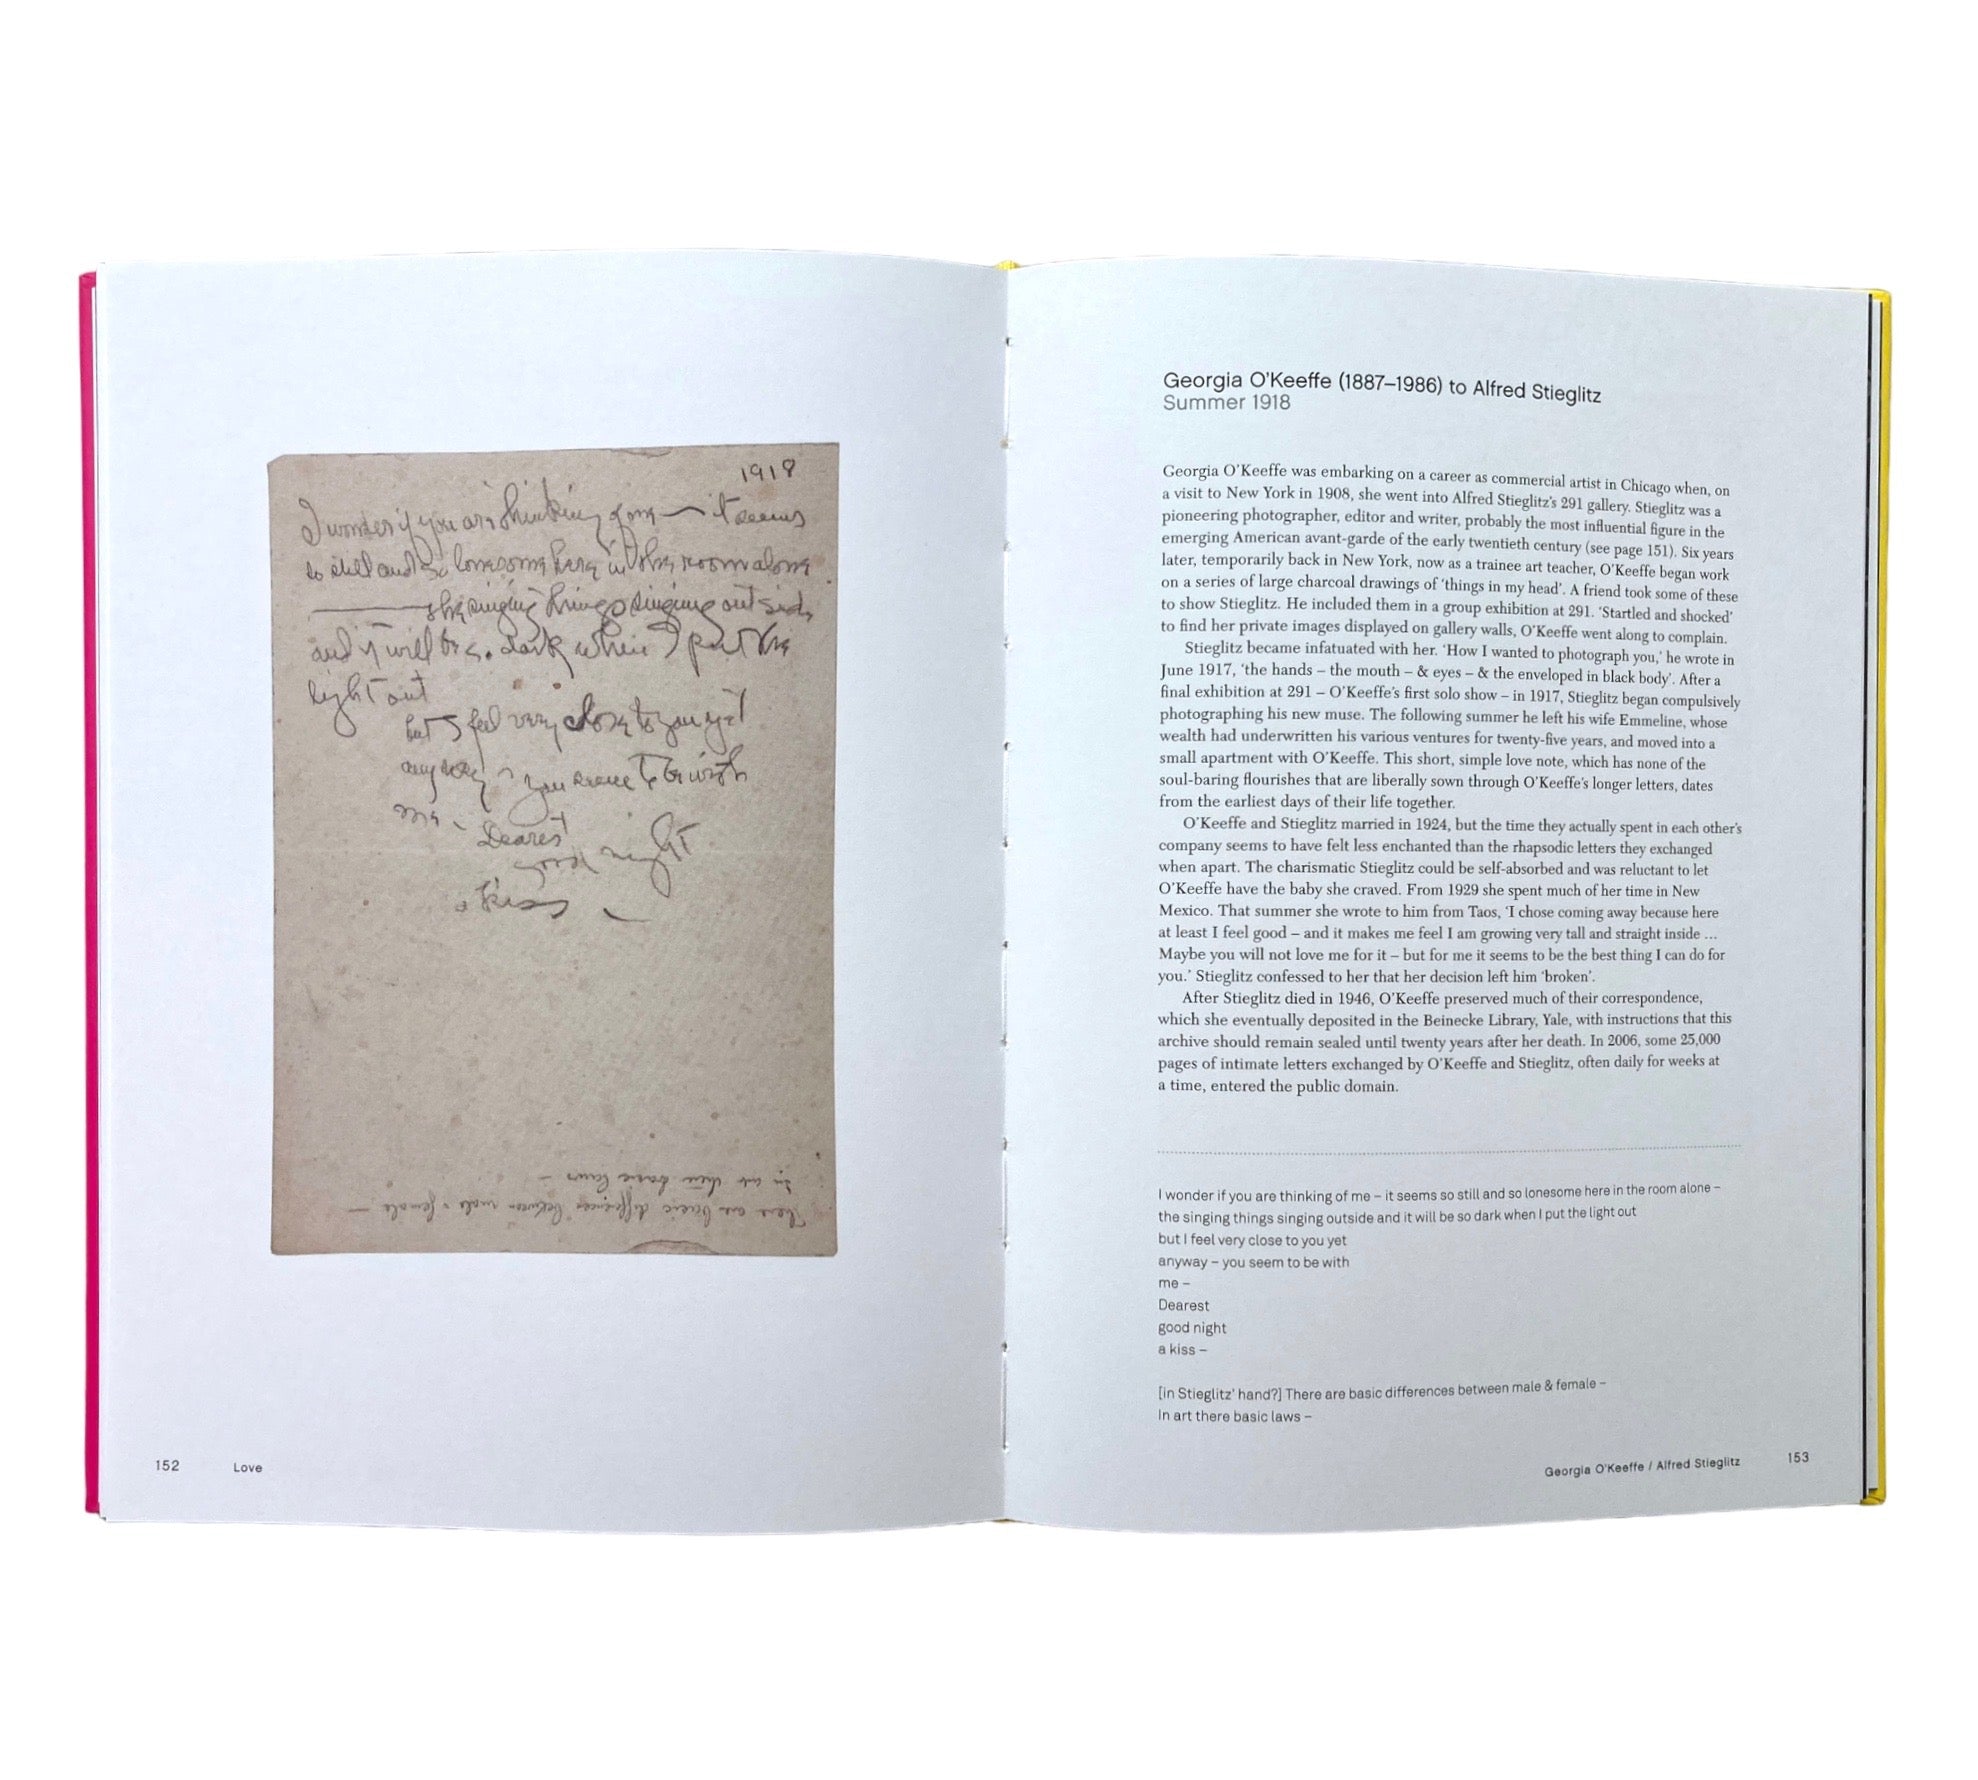 1918
I wonder if you are thinking of me — it seems
so still and so lonesome here in the room alone
— the singing things singing outside
and it will be so dark when I put the
light out
but I feel very close to you yet
anyway – you seem to be with
me –
Dearest
good night
a kiss –
There are basic differences between male & female –
In art there basic laws –
152 Love
Georgia O'Keeffe (1887–1986) to Alfred Stieglitz
Summer 1918
Georgia O'Keeffe was embarking on a career as commercial artist in Chicago when, on
a visit to New York in 1908, she went into Alfred Stieglitz's 291 gallery. Stieglitz was a
pioneering photographer, editor and writer, probably the most influential figure in the
emerging American avant-garde of the early twentieth century (see page 151). Six years
later, temporarily back in New York, now as a trainee art teacher, O'Keeffe began work
on a series of large charcoal drawings of 'things in my head'. A friend took some of these
to show Stieglitz. He included them in a group exhibition at 291. 'Startled and shocked'
to find her private images displayed on gallery walls, O'Keeffe went along to complain.
Stieglitz became infatuated with her. 'How I wanted to photograph you,' he wrote in
June 1917, 'the hands – the mouth – & eyes – & the enveloped in black body'. After a
final exhibition at 291 – O'Keeffe's first solo show – in 1917, Stieglitz began compulsively
photographing his new muse. The following summer he left his wife Emmeline, whose
wealth had underwritten his various ventures for twenty-five years, and moved into a
small apartment with O'Keeffe. This short, simple love note, which has none of the
soul-baring flourishes that are liberally sown through O'Keeffe's longer letters, dates
from the earliest days of their life together.
O'Keeffe and Stieglitz married in 1924, but the time they actually spent in each other's
company seems to have felt less enchanted than the rhapsodic letters they exchanged
when apart. The charismatic Stieglitz could be self-absorbed and was reluctant to let
O'Keeffe have the baby she craved. From 1929 she spent much of her time in New
Mexico. That summer she wrote to him from Taos, 'I chose coming away because here
at least I feel good – and it makes me feel I am growing very tall and straight inside ...
Maybe you will not love me for it – but for me it seems to be the best thing I can do for
you.' Stieglitz confessed to her that her decision left him 'broken'.
After Stieglitz died in 1946, O'Keeffe preserved much of their correspondence,
which she eventually deposited in the Beinecke Library, Yale, with instructions that this
archive should remain sealed until twenty years after her death. In 2006, some 25,000
pages of intimate letters exchanged by O'Keeffe and Stieglitz, often daily for weeks at
a time, entered the public domain.
I wonder if you are thinking of me – it seems so still and so lonesome here in the room alone –
the singing things singing outside and it will be so dark when I put the light out
but I feel very close to you yet
anyway – you seem to be with
me –
Dearest
good night
a kiss –
[in Stieglitz' hand?] There are basic differences between male & female –
In art there basic laws –
Georgia O'Keeffe / Alfred Stieglitz 153